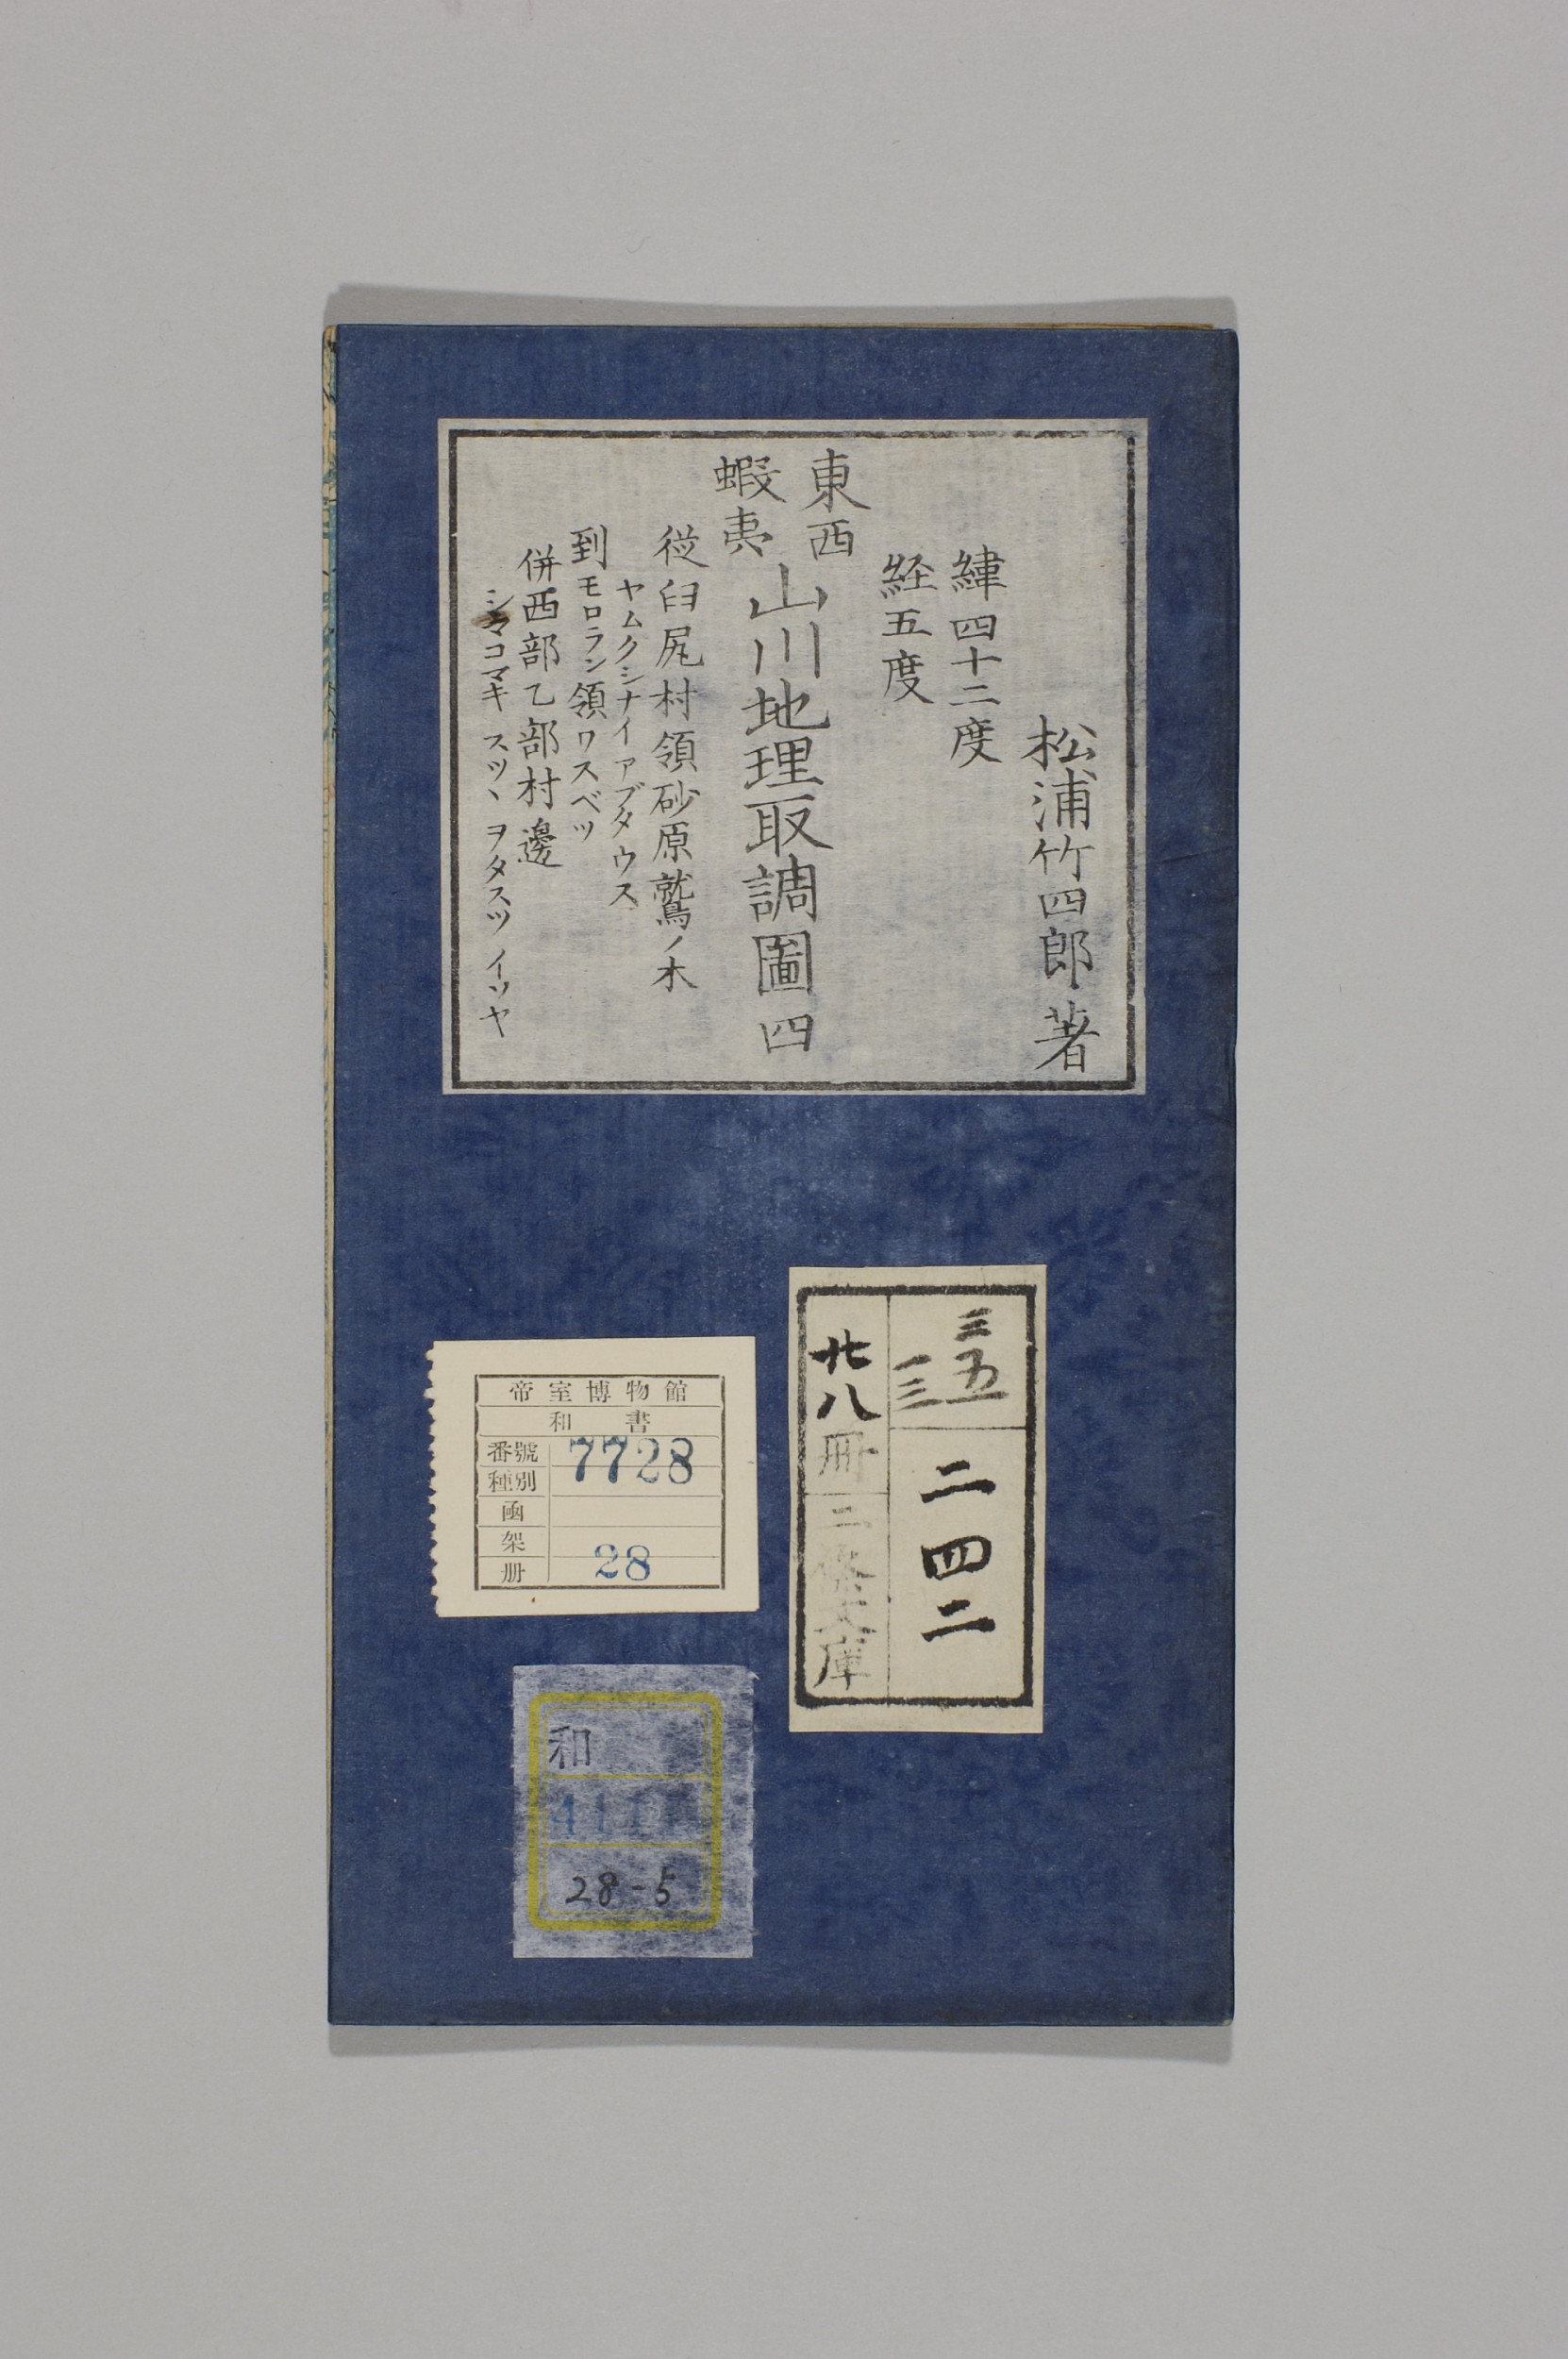 松浦竹四郎著
緯四十二度
経五度
東西
蝦夷
山川地理取調圖四
従臼尻村領砂原鷲ノ木
ヤムクシナイアブタウス
到モロラン領ワスベツ
併西部乙部村邊
シマコマキ スツヽ ヲタスツ イソヤ
三五
二四二
廿八冊
文庫
帝室博物館
和書
番號 7728
種別
函
架
册 28
和
28-5